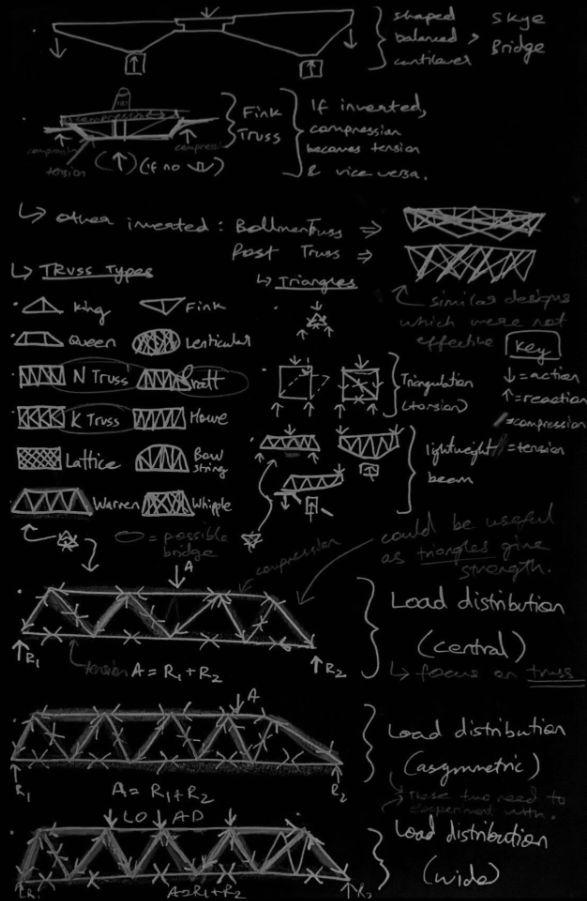 shaped
balanced
cantilever
Skye
Bridge
Fink
Truss
If inverted,
compression
becomes tension
& vice versa.
compression
compression
tension
(↑) (if no ⇩)
↳ other inverted : Bollman Truss ⇒
Post Truss ⇒
similar designs
which were not
effective
↳ Truss Types
King
Fink
Queen
Lenticular
N Truss
Pratt
K Truss
Howe
Lattice
Bow
string
Warren
Whipple
= possible
bridge
↳ Triangles
Triangulation
(torsion)
lightweight
beam
Key
↓=action
↑=reaction
=compression
=tension
could be useful
as triangles give
strength.
A
compression
R1
R2
tension
A = R1 + R2
Load distribution
(central)
↳ focus on truss
A
R1
R2
A = R1 + R2
Load distribution
(asymmetric)
↳ These two need to
experiment with.
LOAD
R1
R2
A=R1+R2
Load distribution
(wide)